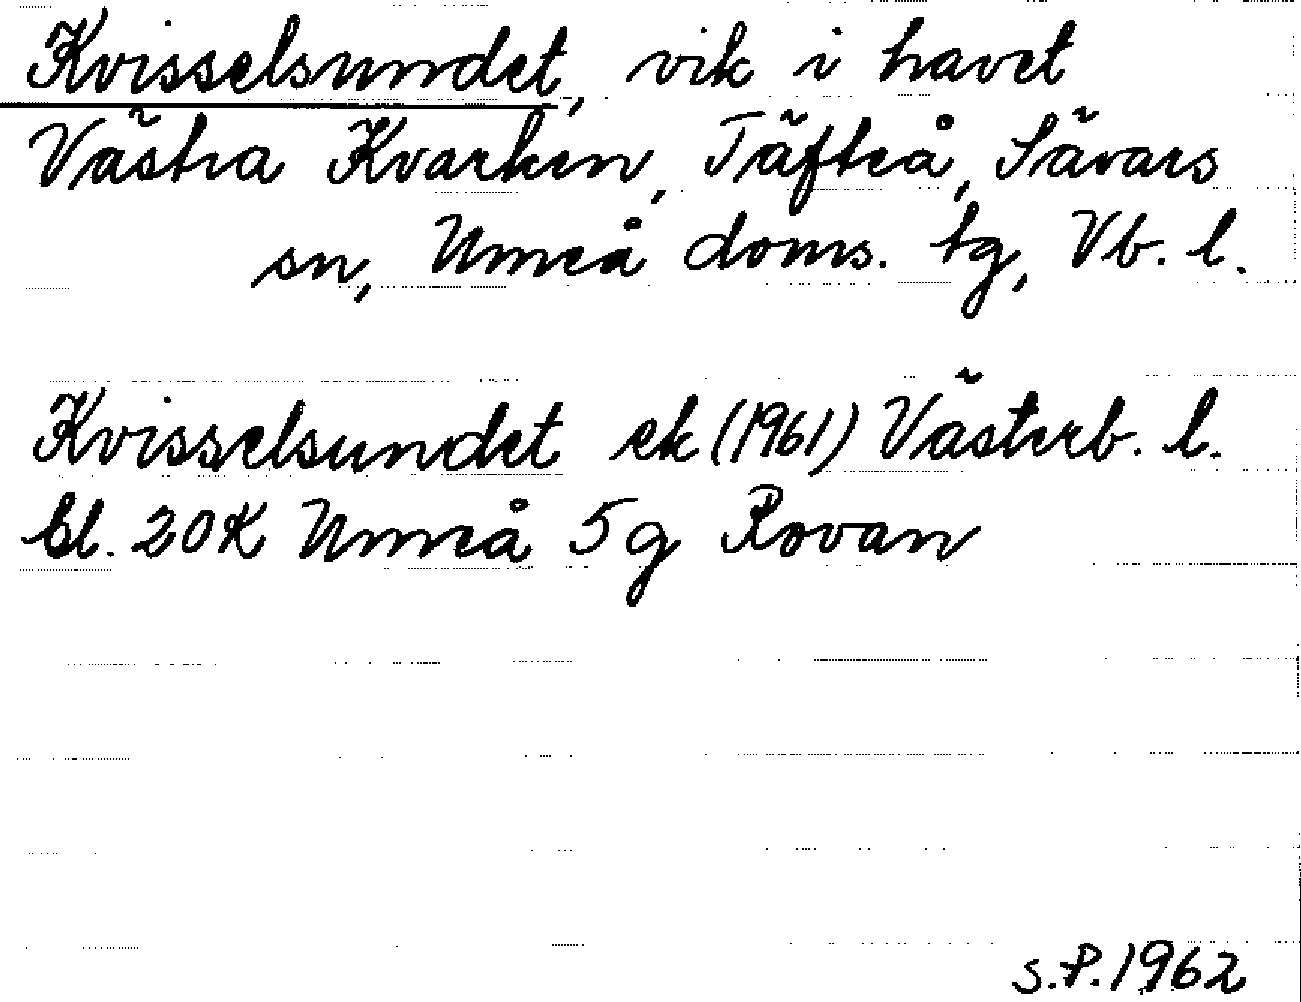 Kvisselsundet, vik i havet
Västra Kvarken, Täfteå, Sävars
sn, Umeå doms. tg, Vb. l.
Kvisselsundet ek (1961) Västerb. l.
bl. 20K Umeå 5g Rovan
S.P. 1962